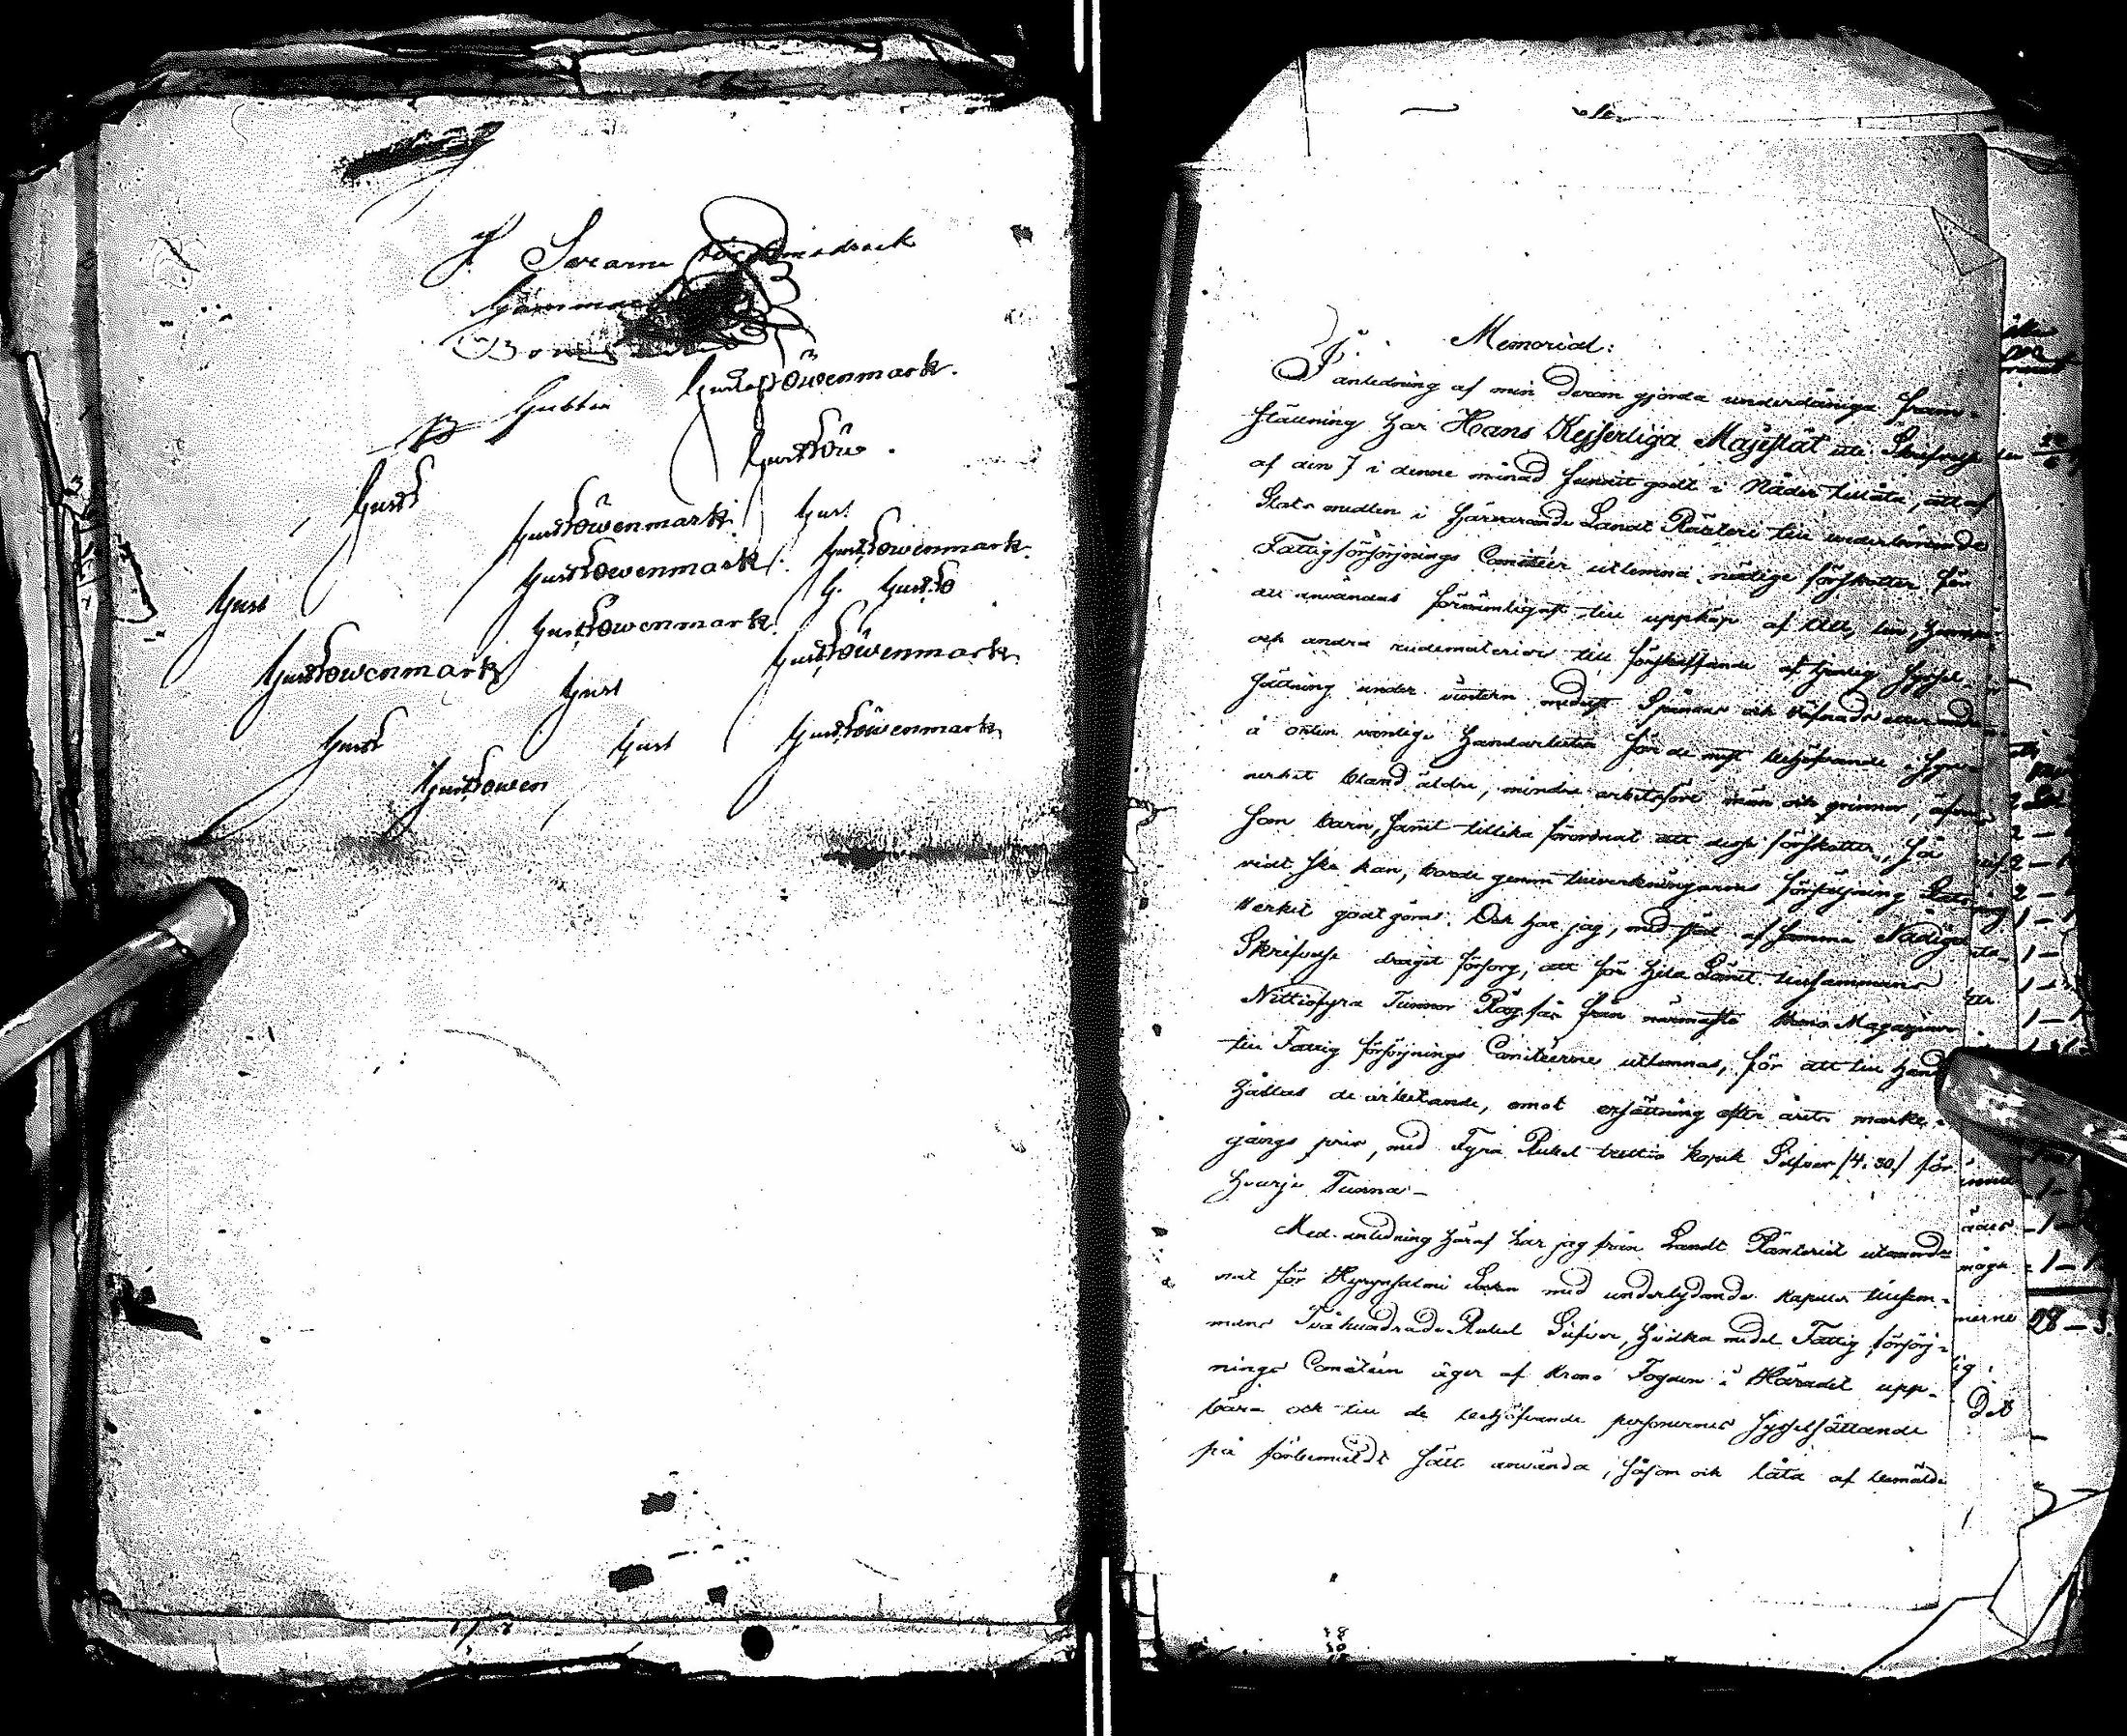 Gustaf Löwenmark.
Gustin
Gust Löw.
Gust L
Gust Löwenmark. Gust
Gust Löwenmark. Gust Löwenmark.
Gust G. Gust Lö
Gust Löwenmark. Gust Löwenmark.
Gust Löwenmark
Gust
Gust L Gust Gust Löwenmark
Gust Löwen
Memorial:
I anledning af min derom gjorda underdåniga fram-
ställning har Hans Kejserliga Majestät uti Skrifvelse
af den 7 i denne månad funnit godt i Nåder tillåta, att af
Stats medlen i härvarande Landt Ränteri till vederbörande
Fattigförsörjnings Comitéer utlemna nödige förskotter för
att användas förnämligast till uppköp af Ull, lin, hampa
och andra rudimaterier till förskaffande af tjenlig syssel-
sättning under vintern medelst Spånad och Väfnad eller andra
å orten vanlige handarbeten för de mest behöfvande, i syn-
nerhet bland äldre, mindre arbetsföre män och qvinnor, äfven
som barn, samt tillika förordnat att desse förskotter, så
vidt ske kan, borde genom tillverkningarnes försäljning
verket godtgöras. Och har jag, med stöd af samma Nådiga
Skrifvelse dragit försorg, att för hela Länet tillsammans
Nittiofyra Tunnor Råg får från närmaste Krono Magasiner
till Fattig försörjnings Comitéerne utlemnas, för att till hand
hållas de arbetande, emot ersättning efter årets marke-
gångs pris, med Fyra Rubel trettio kopek Silfver /4. 30/ för
hvarje Tunna.-
Med anledning häraf har jag från Landt Ränteriet utanord-
nat för Hyrynsalmi Soken med underlydande Kapeller tillsam-
mans Tvåhundrade Rubel Silfver, hvilka medel Fattig försörj-
nings Comitéen äger af Krono Fogden i Häradet upp-
bära och till de behöfvande personernes sysselsättande
på förbemäldt sätt använda, såsom och låta af bemälde
28 -
Det